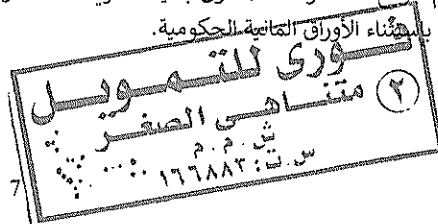 باستثناء الأوراق المالية الحكومية.
فورى للتمويل
متناهى الصغر
٢
ش . م . م
س . ت : ١٦٦٨٨٣
7